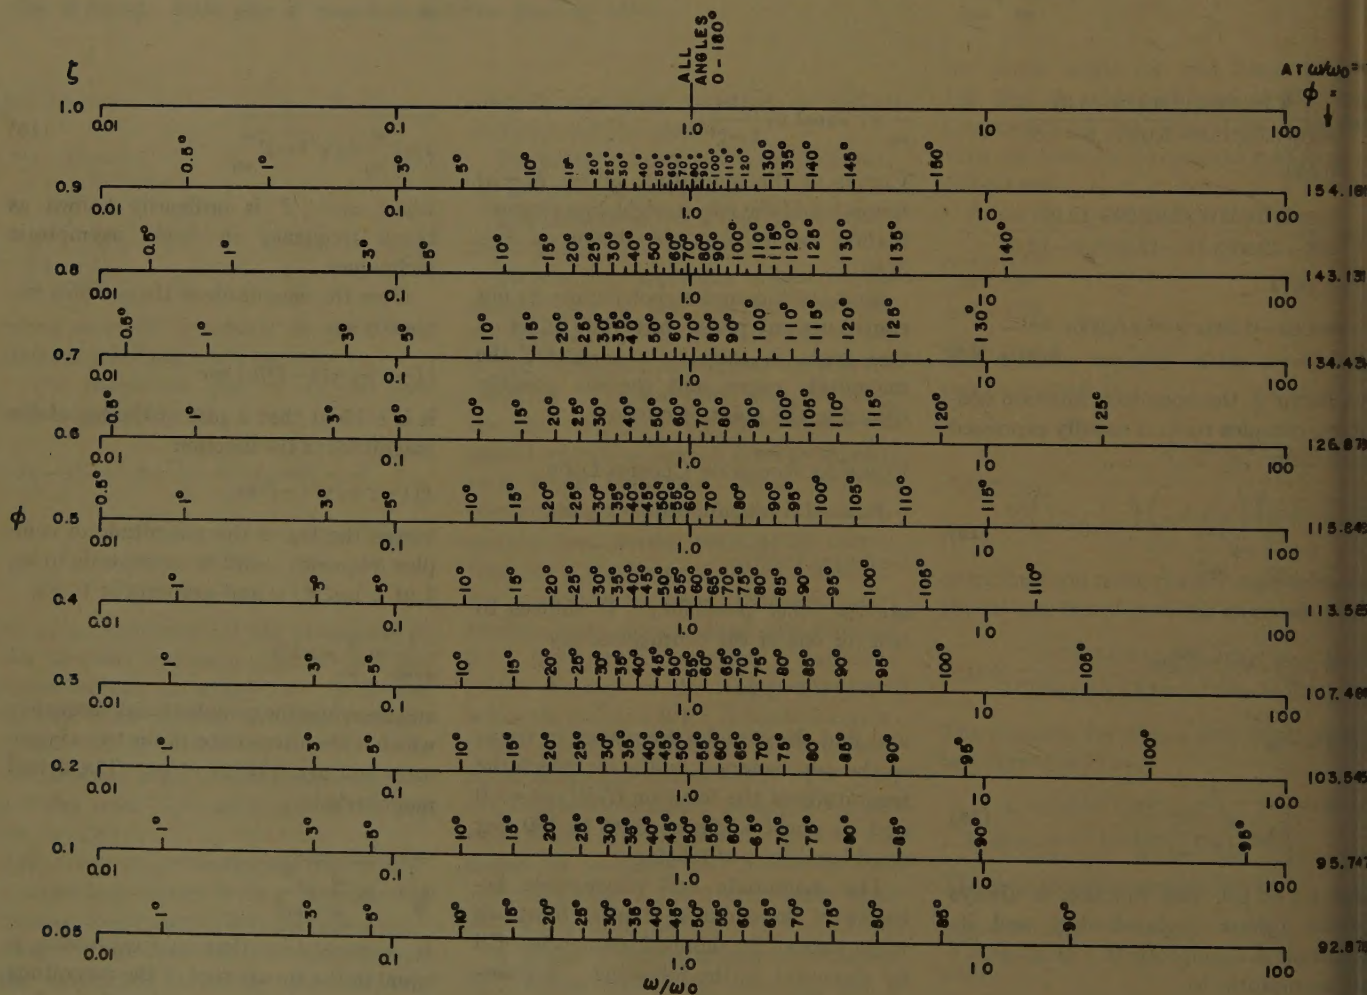 ALL
ANGLES
0-180°
ζ
AT ω/ω0=
ϕ =
1.0
0.01 0.1 1.0 10 100
0.5° 1° 3° 5° 10° 15° 20° 25° 30° 40° 50° 60° 70° 80° 90° 100° 110° 120° 130° 135° 140° 145° 150°
0.9 154.16
0.01 0.1 1.0 10 100
0.5° 1° 3° 5° 10° 15° 20° 25° 30° 40° 50° 60° 70° 80° 90° 100° 110° 115° 120° 125° 130° 135° 140°
0.8 143.13
0.01 0.1 1.0 10 100
0.5° 1° 3° 5° 10° 15° 20° 25° 30° 35° 40° 50° 60° 70° 80° 90° 100° 110° 115° 120° 125° 130°
0.7 134.43
0.01 0.1 1.0 10 100
0.5° 1° 3° 5° 10° 15° 20° 25° 30° 40° 50° 60° 70° 80° 90° 100° 105° 110° 115° 120° 125°
0.6 126.87
0.01 0.1 1.0 10 100
0.5° 1° 3° 5° 10° 15° 20° 25° 30° 35° 40° 45° 50° 55° 60° 70° 80° 90° 95° 100° 105° 110° 115°
ϕ 0.5 115.64
0.01 0.1 1.0 10 100
1° 3° 5° 10° 15° 20° 25° 30° 35° 40° 45° 50° 55° 60° 65° 70° 75° 80° 85° 90° 95° 100° 105° 110°
0.4 113.58
0.01 0.1 1.0 10 100
1° 3° 5° 10° 15° 20° 25° 30° 35° 40° 45° 50° 55° 60° 65° 70° 75° 80° 85° 90° 95° 100° 105°
0.3 107.46
0.01 0.1 1.0 10 100
1° 3° 5° 10° 15° 20° 25° 30° 35° 40° 45° 50° 55° 60° 65° 70° 75° 80° 85° 90° 95° 100°
0.2 103.54
0.01 0.1 1.0 10 100
1° 3° 5° 10° 15° 20° 25° 30° 35° 40° 45° 50° 55° 60° 65° 70° 75° 80° 85° 90° 95°
0.1 95.74
0.01 0.1 1.0 10 100
1° 3° 5° 10° 15° 20° 25° 30° 35° 40° 45° 50° 55° 60° 65° 70° 75° 80° 85° 90°
0.05 92.87
0.01 0.1 1.0 10 100
ω/ω0